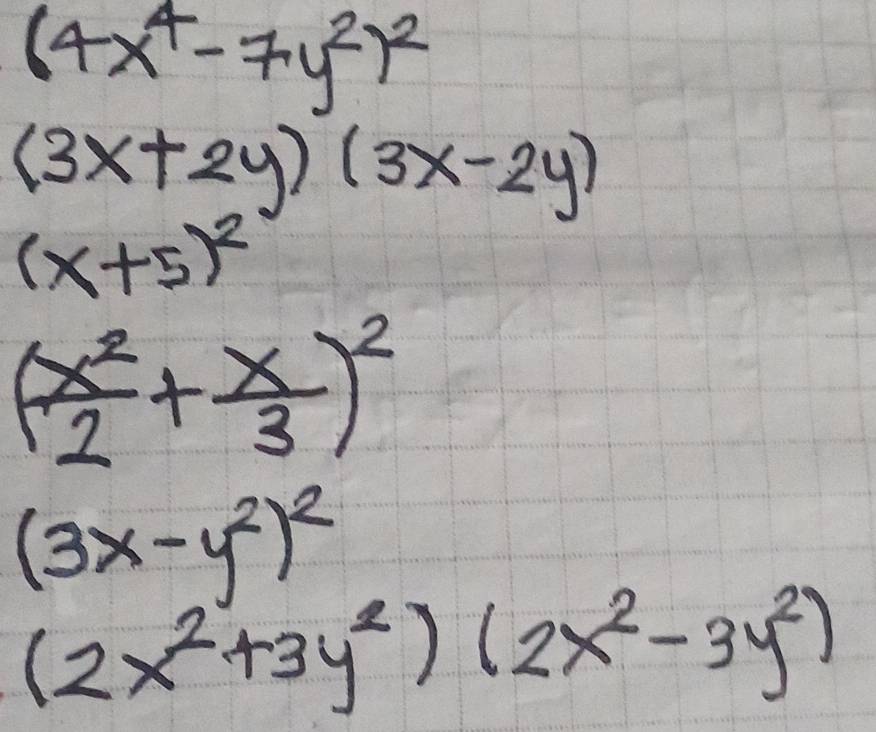 (4x⁴-7y²)²
(3x+2y)(3x-2y)
(x+5)²
(x²/2+x/3)²
(3x-y²)²
(2x²+3y²)(2x²-3y²)